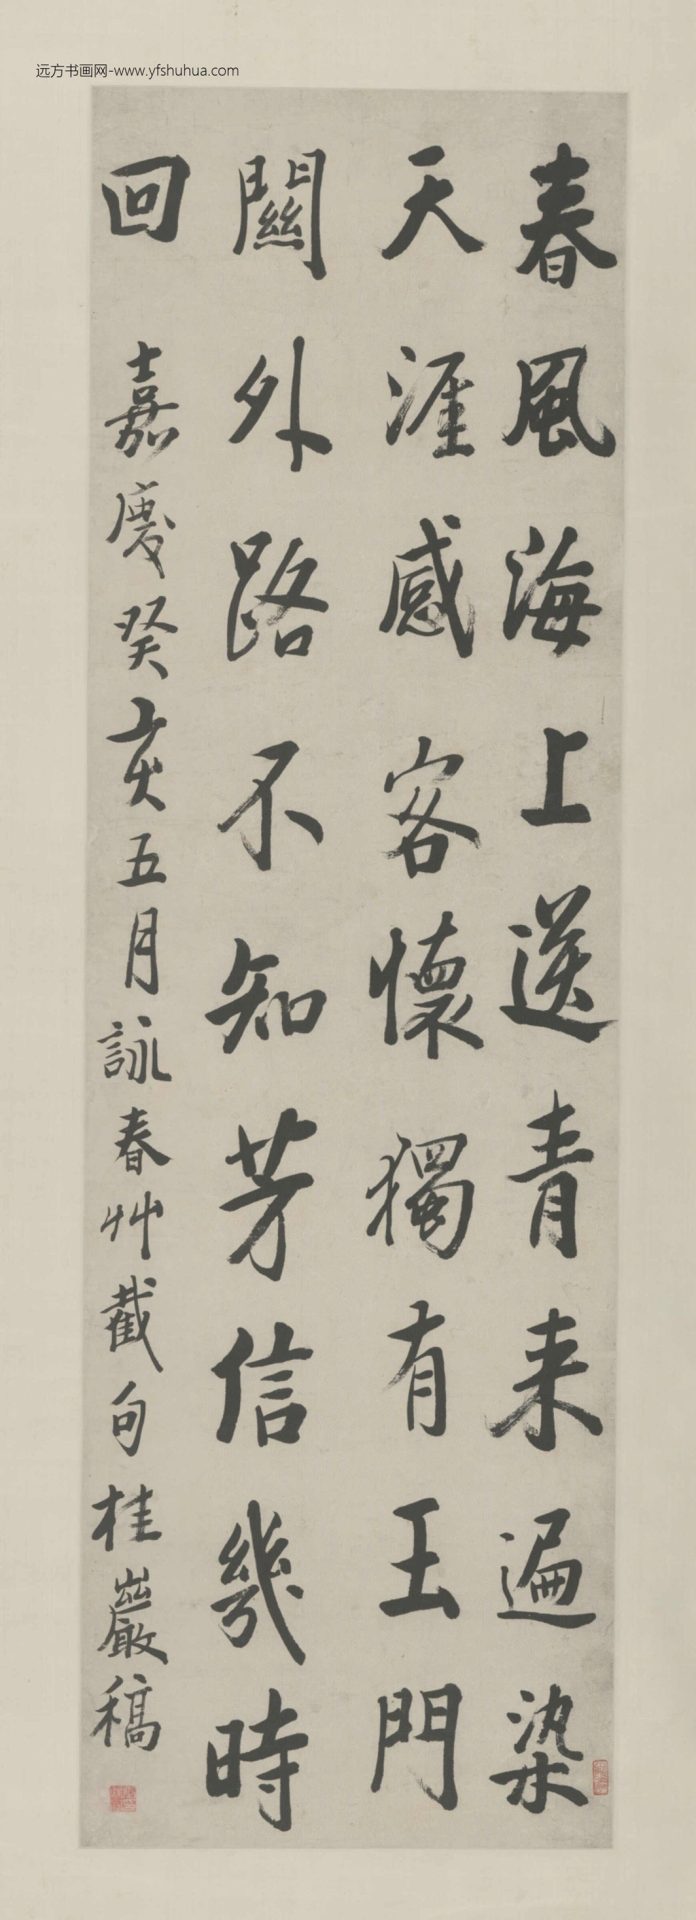 远方书画网-www.yfshuhua.com
春風海上送青来遍染
天涯感客懷獨有玉門
關外路不知芳信幾時
回
嘉慶癸亥五月詠春艸截句桂巖稿